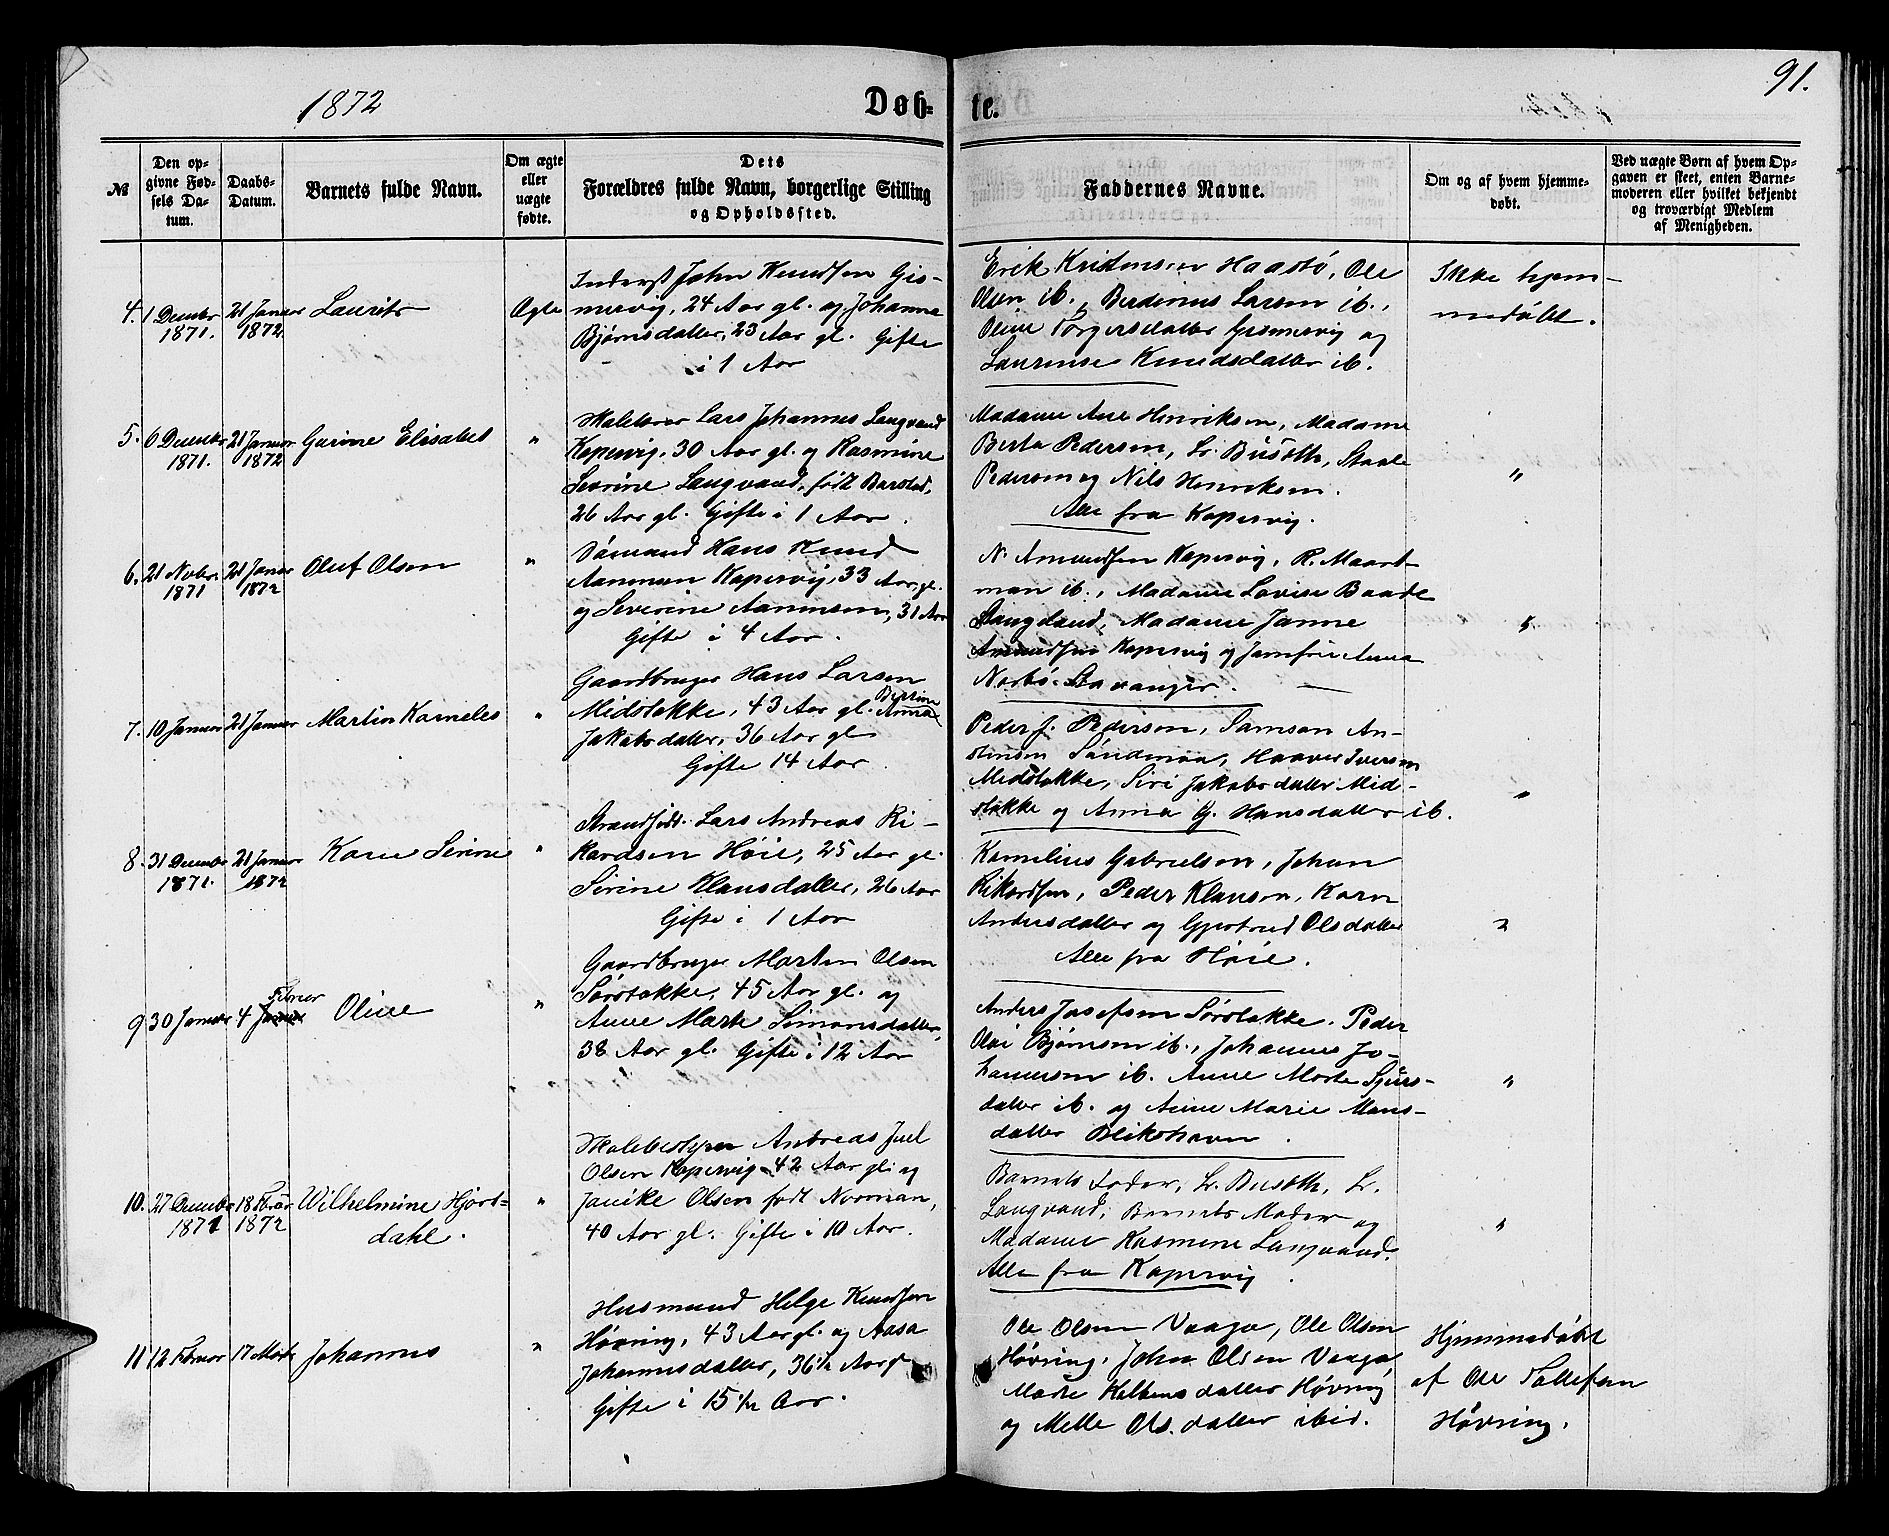 1872
Døb-
te.
91.
№
Den op-
givne Fød-
sels Da-
tum.
Daabs-
Datum.
Barnets fulde Navn.
Om ægte
eller
uægte
fødte.
Dets
Forældres fulde Navn, borgerlige Stilling
og Opholdssted.
Faddernes Navne.
Om og af hvem hjemme-
døbt.
Ved uægte Børn af hvem Op-
gaven er skeet, enten Barne-
moderen eller hvilket bekjendt
og troværdigt Medlem
af Menigheden.
4. 1 Decembr 1871. 21 Januar 1872. Laurits Ægte
Inderst John Knudsen Gis-
mervig, 24 Aar gl. og Johanna
Bjørnsdatter, 23 Aar gl. Gifte
i 1 Aar
Erik Kristensen Haastø, Ole
Olsen ib., Berdinus Larsen ib.,
Oline Torgersdatter Gismervig og
Laurense Knudsdatter ib.
Ikke hjem-
medøbt.
5. 6 Decembr 1871. 21 Januar 1872 Gurine Elisabet "
Skolelærer Lars Johannes Langvand
Kopervig, 30 Aar gl. og Rasmine
Severine Langvand, født Barstad,
26 Aar gl. Gifte i 1 Aar.
Madame Ane Henriksen, Madame
Berta Pedersen, Lr. Busøth, Staale
Pedersen og Nils Henriksen.
Alle fra Kopervig.
"
6. 21 Novbr. 1871 21 Januar 1872 Oluf Olsen "
Sømand Hans Knud
Aanensen Kopervig, 33 Aar gl.
og Severine Aanensen, 31 Aar
Gifte i 4 Aar.
N. Amundsen Kopervig, R. Maart-
man ib., Madame Lovise Baade
Langeland, Madame Janne
Amundsen Kopervig og Jomfru Anna
Norbø Stavanger.
"
7. 10 Januar 21 Januar Martin Korneles "
Gaardbruger Hans Larsen
Midstokke, 43 Aar gl. Bertine Anna
Jakobsdatter, 36 Aar gl
Gifte 14 Aar.
Peder J. Pederson, Samson An-
stensen Søndenaa, Haaver Iversen
Midstokke, Siri Jakobsdatter Mid-
stokke og Anna G. Hansdatter ib.
"
8. 31 Decembr 1871. 21 Januar 1872 Karen Serine "
Strandsidd. Lars Andreas Ri-
kardsen Høie, 25 Aar gl.
Serine Klausdatter, 26 Aar
Gifte i 1 Aar
Kornelius Gabrielsen, Johan
Rikardsen, Peder Klausen, Karen
Andersdatter og Gjertrud Olsdatter
Alle fra Høie.
"
9 30 Januar 4 Februar Januar Oline "
Gaardbruger Martin Olsen
Sørstokke, 45 Aar gl. og
Anne Marte Simonsdatter,
38 Aar gl. Gifte i 12 Aar
Anders Josefsen Sørstokke. Peder
Olai Bjørnsen ib., Johannes Jo-
hannesen ib. Anne Marte Sjurs-
datter ib. og Anne Marie Mons-
datter Blikshavn.
"
10. 27 Decembr 1871 18 Febrar 1872 Wilhelmine Hjort-
dahl. "
Skolebestyrer Andreas Juel
Olsen Kopervig 42 Aar gl. og
Janike Olsen født Norman,
40 Aar gl. Gifte i 10 Aar.
Barnets Fader, Lr. Busøth, Lr.
Langvand, Barnets Moder og
Madame Rasmine Langvand.
Alle fra Kopervig.
"
11 12 Februar 17 Marts Johannes "
Husmand Helge Knudsen
Høvring, 43 Aar gl. og Aasa
Johannesdatter, 36½ Aar gl
Gifte i 15½ Aar.
Ole Olsen Vaaga, Ole Olsen
Høvring, John Olsen Vaaga,
Marte Helgesdatter Høvring
og Mette Olsdatter ibid.
Hjemmedøbt
af Ole Tollefsen
Høvring.